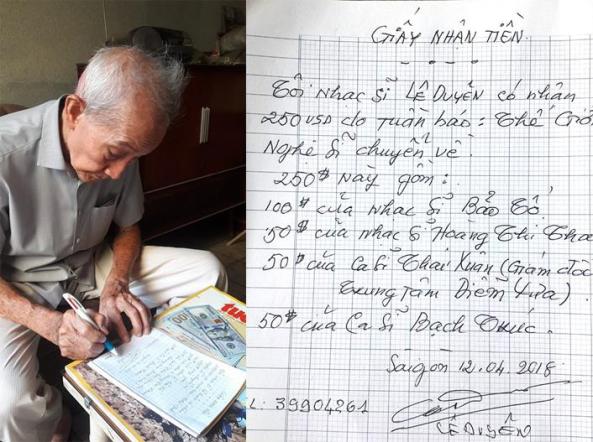 GIẤY NHẬN TIỀN
Tôi nhạc sĩ LÊ DUYÊN có nhận
250 USD do tuần báo: Thế Giới
Nghệ Sĩ chuyển về.
250$ này gồm:
100$ của nhạc sĩ Bảo Tố
50$ của nhạc sĩ Hoàng Thi Tha
50$ của Ca sĩ Thái Xuân (Giám đốc
Trung Tâm Diễm Xưa).
50$ của Ca sĩ Bạch Thúc.
Saigon 12.04.2018
L: 39904261
LÊ DUYÊN